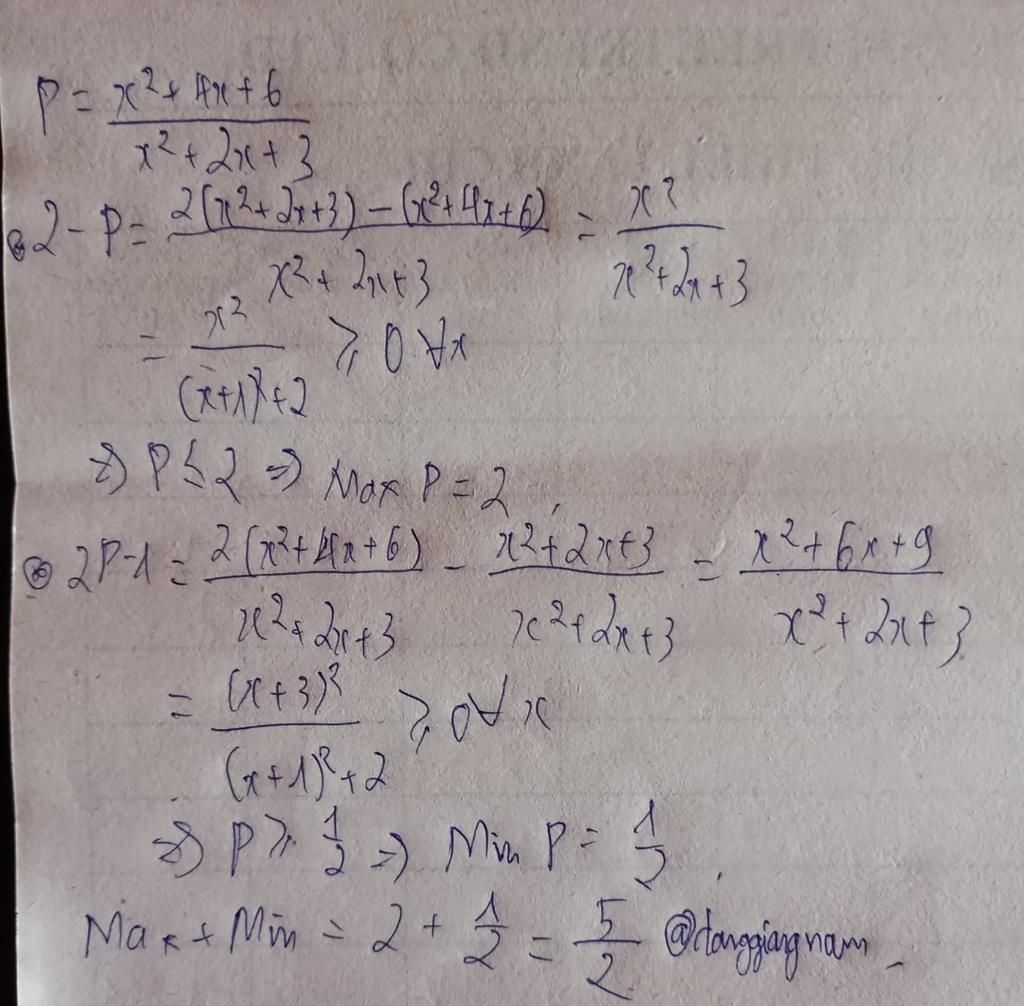 P = \frac{x^2+4x+6}{x^2+2x+3}
⊛ 2-P = \frac{2(x^2+2x+3)-(x^2+4x+6)}{x^2+2x+3} = \frac{x^2}{x^2+2x+3}
= \frac{x^2}{(x+1)^2+2} ⩾ 0 ∀x
⇒ P ≤ 2 ⇒ Max P = 2,
⊛ 2P-1 = \frac{2(x^2+4x+6)}{x^2+2x+3} - \frac{x^2+2x+3}{x^2+2x+3} = \frac{x^2+6x+9}{x^2+2x+3}
= \frac{(x+3)^2}{(x+1)^2+2} ⩾ 0 ∀x
⇒ P ⩾ \frac{1}{2} ⇒ Min P = \frac{1}{2},
Max + Min = 2 + \frac{1}{2} = \frac{5}{2} @danggiangnam